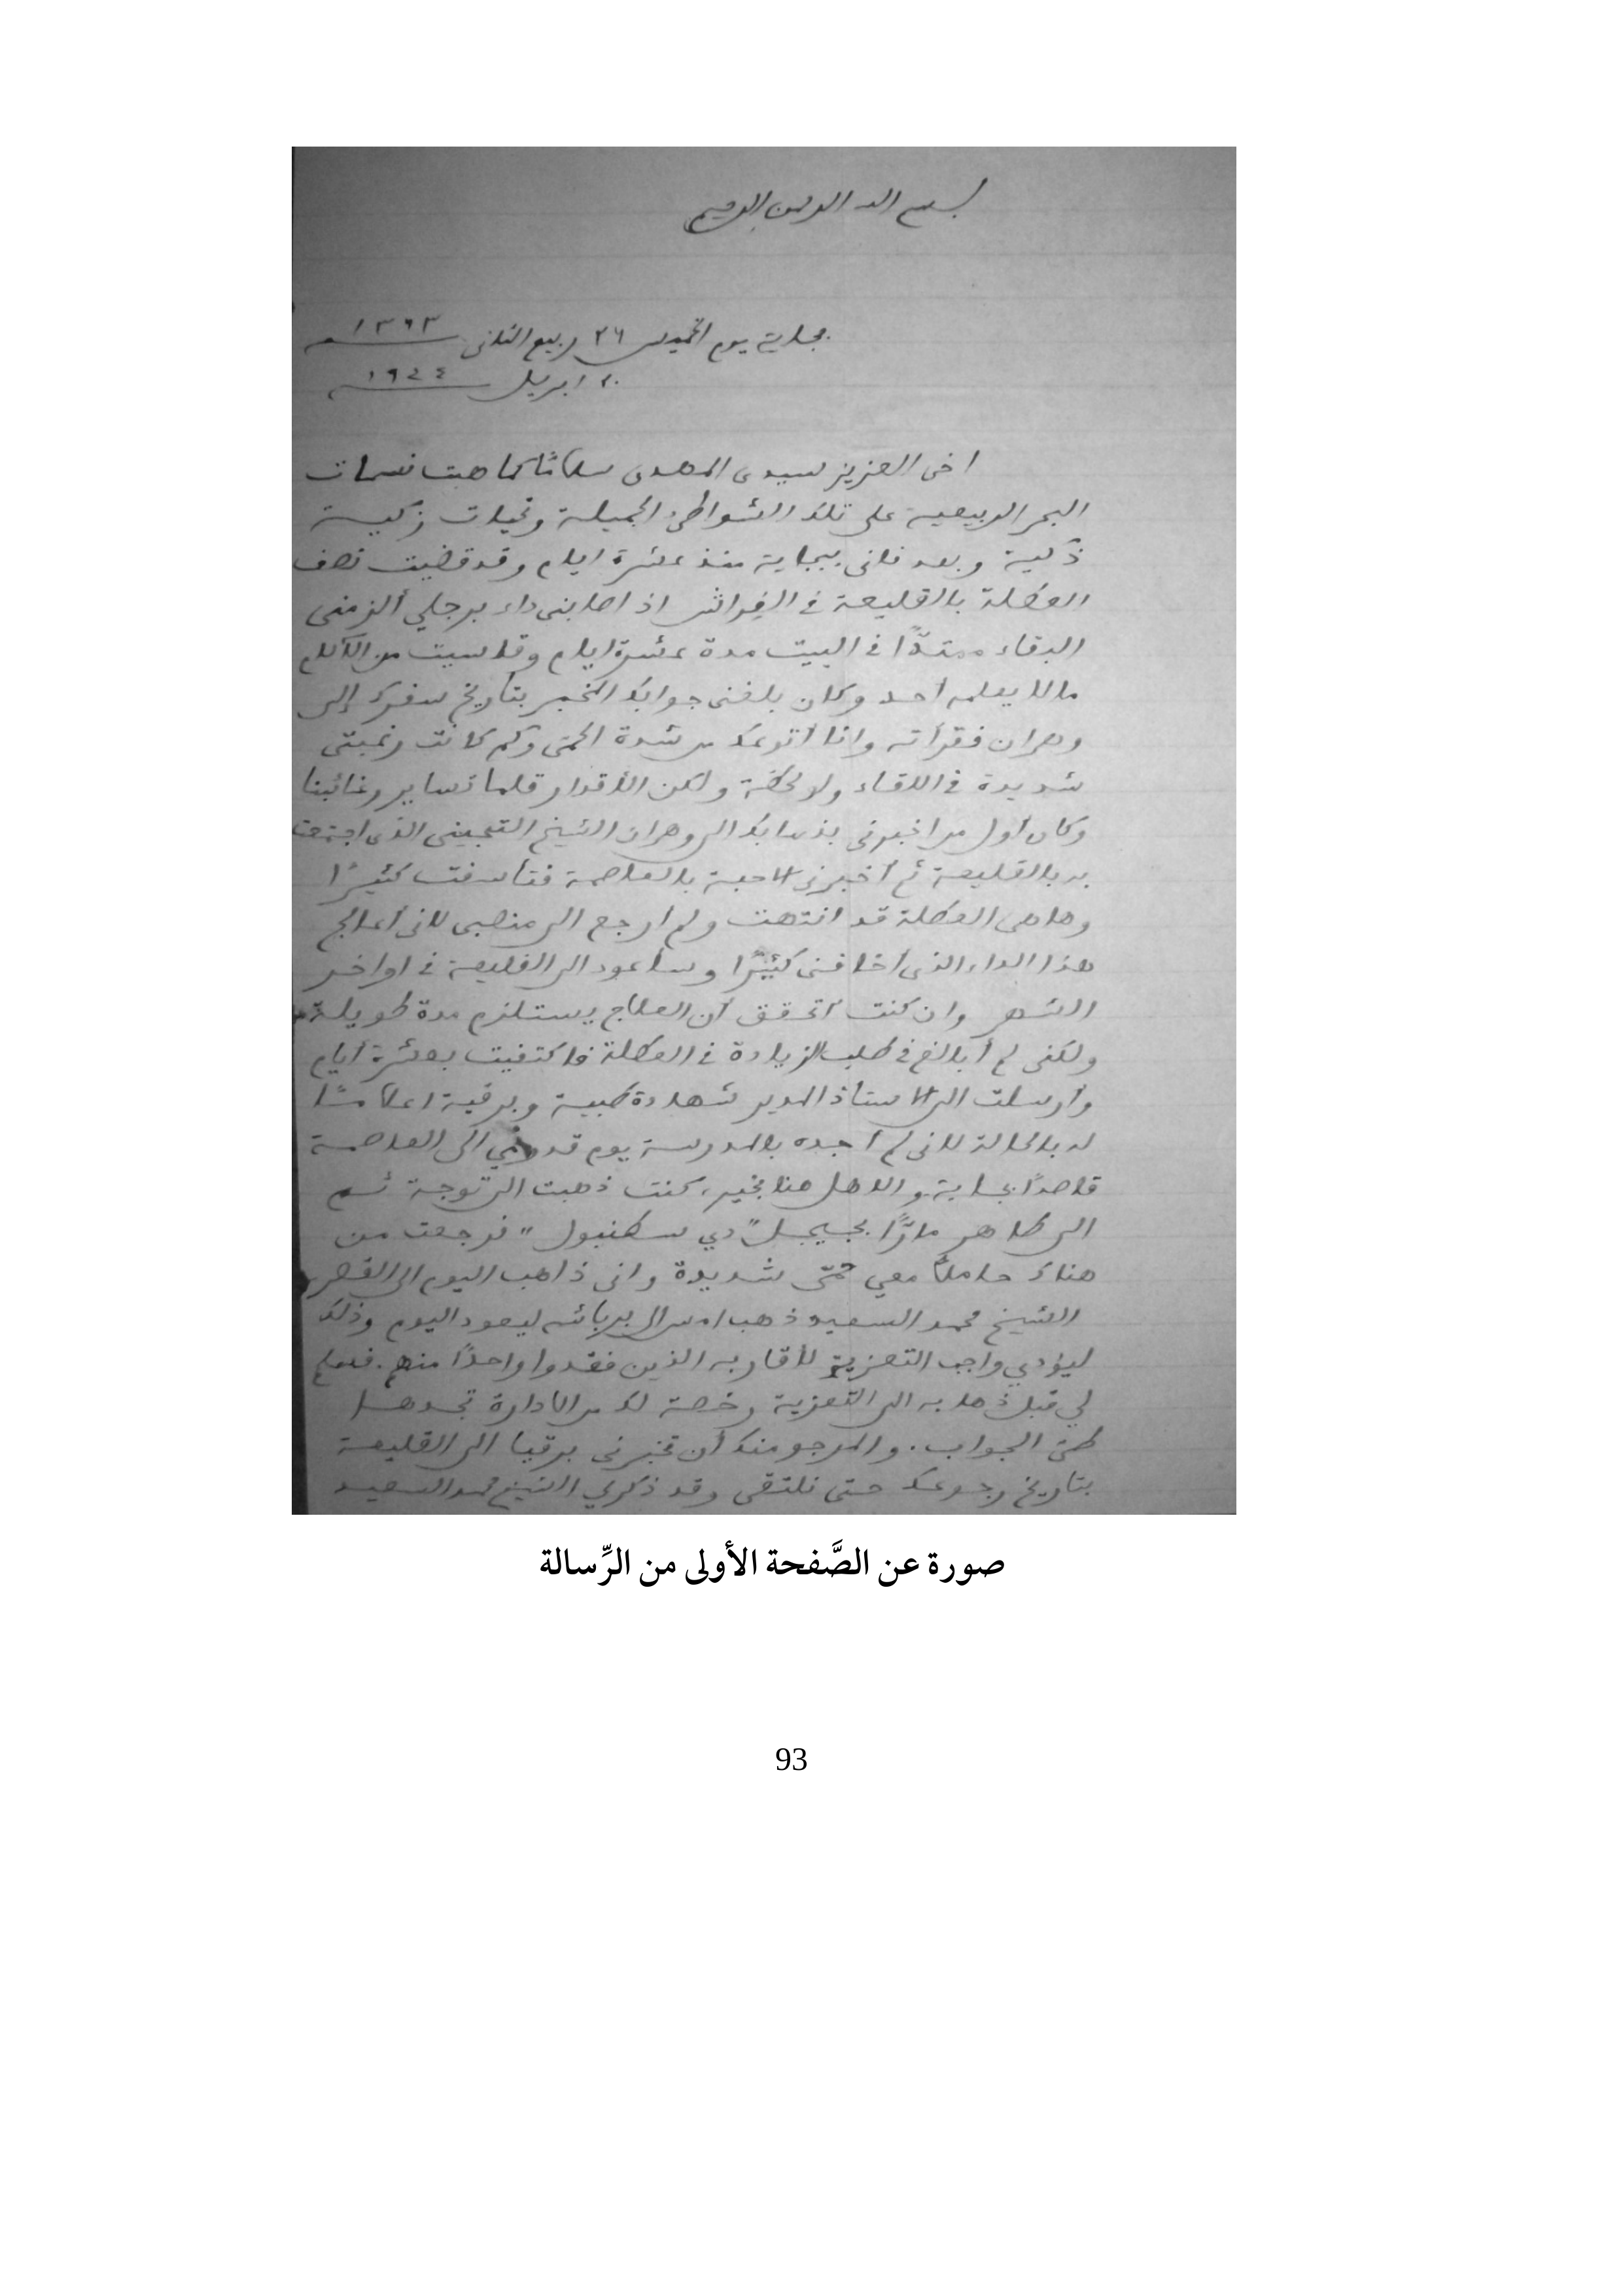 بسم الله الرحمن الرحيم
بجاية يوم الخميس ٢٦ ربيع الثاني ١٣٦٣
٢٠ ابريل ١٩٤٤
اخى العزيز سيدى المهدى سلامًا كما هبت نسمات
البحر الربيعية على تلك الشواطئ الجميلة وتحيات زكية
ذكية وبعد فانى ببجاية منذ عشرة ايام وقد قضيت نصف
العطلة بالقليعة في الفِراش اذ اصابنى داء برجلي ألزمنى
البقاء ممتدًّا في البيت مدة عشرة ايام وقاسيت من الآلام
ما لا يعلمه أحد وكان بلغنى جوابك المخبر بتاريخ سفرك إلى
وهران فقرأته وانا أتوعك من شدة الحمى وكم كانت رغبتى
شديدة في اللقاء ولو لحظة ولكن الأقدار قلما تساير رغائبنا
وكان أول من اخبرنى بذهابك الى وهران الشيخ التجينى الذى اجتمعت
به بالقليعة ثم أخبرنى الاحبة بالعاصمة فتأسفت كثيرًا
وها هى العطلة قد انتهت ولم ارجع الى منصبى لانى أعالج
هذا الداء الذى أخافنى كثيرًا وساعود الى القليعة في اواخر
الشهر وان كنت أتحقق أن العلاج يستلزم مدة طويلة
ولكنى لم أبالغ في طلب الزيادة في العطلة فاكتفيت بعشرة أيام
وأرسلت الى الاستاذ المدير شهادة طبية وبرقية اعلامًا
له بالحالة لانى لم أجده بالمدرسة يوم قدومي الى العاصمة
قاصدًا بجاية والاهل هنا بخير، كنت ذهبت الى توجة ثم
الى طاهر مارًّا بجيجل "دي سكنبول" فرجعت من
هناك حاملاً معي حمّى شديدة وانى ذاهب اليوم الى القصر
الشيخ محمد السعيد ذهب امس الى برباشه ليعود اليوم وذلك
ليؤدي واجب التعزية لأقاربه الذين فقدوا واحدًا منهم. فسلم
لي قبل ذهابه الى التعزية رخصة لك من الادارة تجدها
طىّ الجواب. والمرجو منك أن تخبرنى برقيا الى القليعة
بتاريخ رجوعك حتى نلتقى وقد ذكر لي الشيخ محمد السعيد
صورة عن الصَّفحة الأولى من الرِّسالة
93